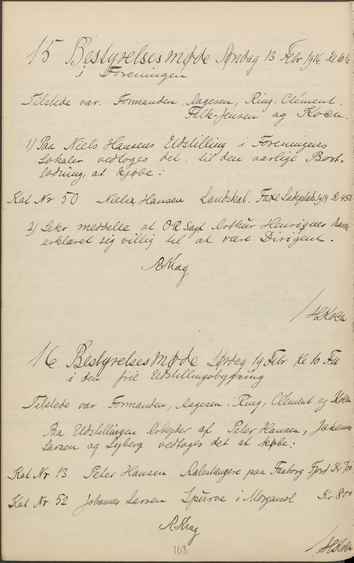 15 Bestyrelsesmøde Søndag 13 Febr 1916 Kl
i Foreningen
Tilstede var Formanden, Aagesen, Ring, Clément
Falk-Jensen og Koch.
1) Paa Niels Hansens Udstilling i Foreningens
Lokaler vedtoges det til den aarlige Bort-
lodning, at kjøbe:
Kat Nr 50 Niels Hansen Landskab. Faxe Ladeplads Kr
2) Sekr meddelte at Arthur Henriques havde
erklæret sig villig til at være Dirigent.
AKrag
16 Bestyrelsesmøde Lørdag 19 Febr Kl 10 Fm
i den frie Udstillingsbygning
Tilstede var Formanden, Aagesen, Ring, Clément og Koch
Paa Udstillingen Arbejder af Peter Hansen, Johannes
Larsen og Syberg vedtoges det at kjøbe:
Kat Nr 13 Peter Hansen Aalestangere paa Faaborg Fjord Kr
Kat Nr 52 Johannes Larsen Spurve i Morgensol Kr
AKrag
103